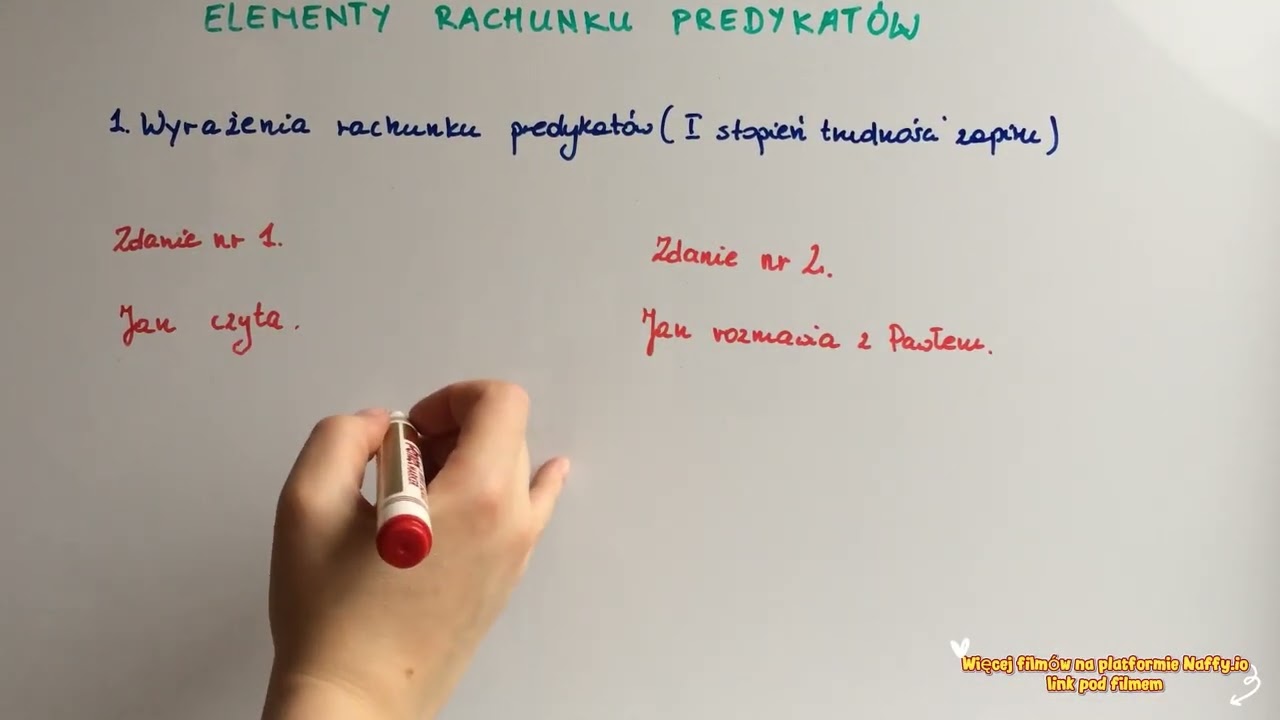 ELEMENTY RACHUNKU PREDYKATÓW
1. Wyrażenia rachunku predykatów (I stopień trudności zapisu)
Zdanie nr 1.
Jan czyta.
Zdanie nr 2.
Jan rozmawia z Pawłem.
Więcej filmów na platformie Naffy.io
link pod filmem